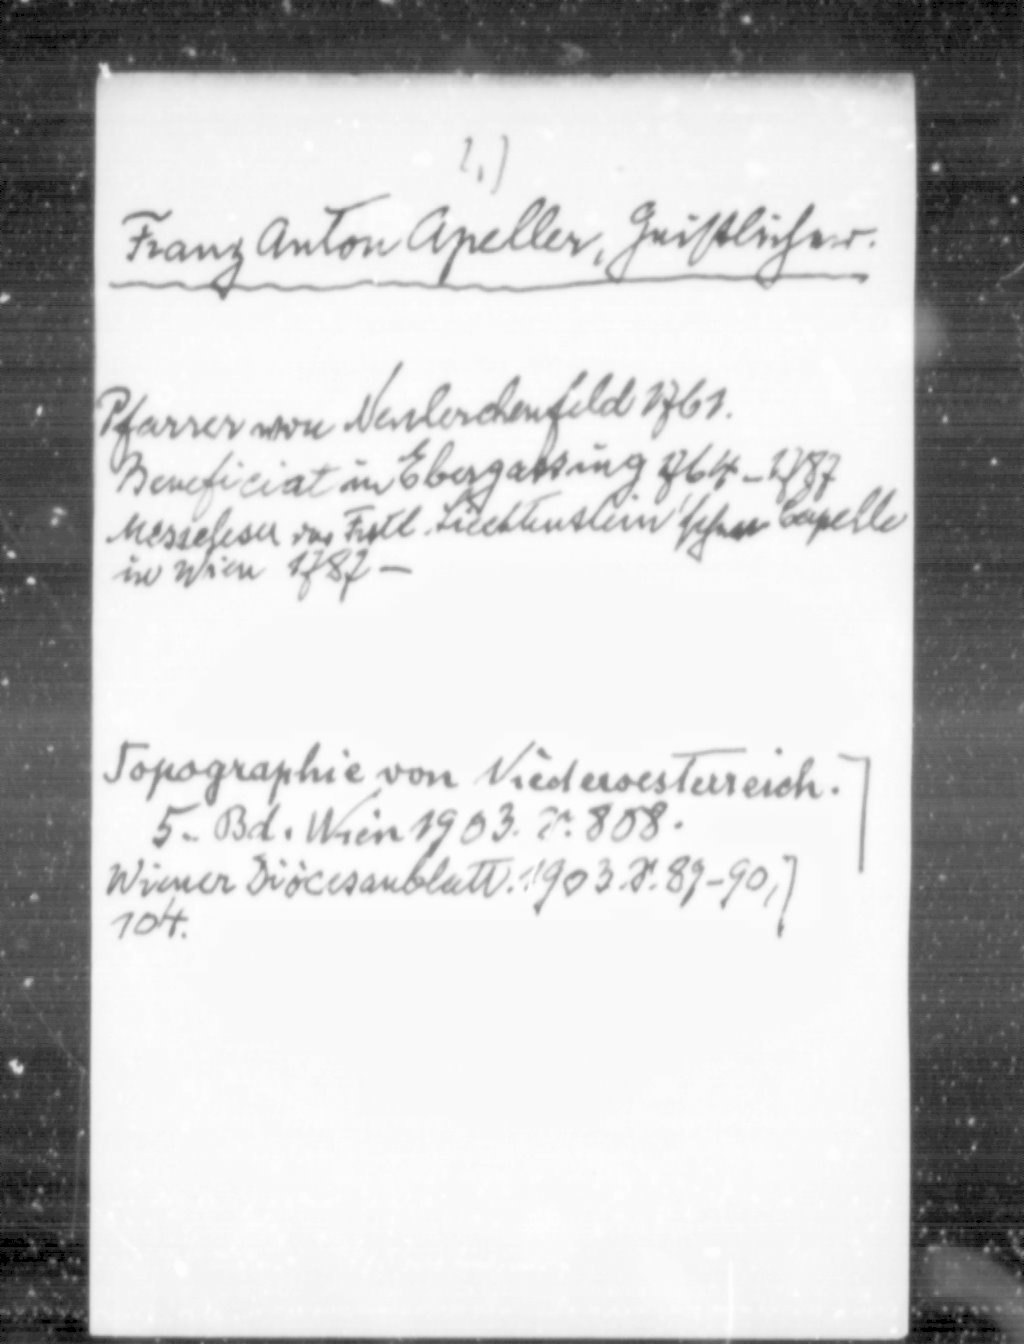 1.)
Franz Anton Apeller, Geistlicher.
Pfarrer von Neulerchenfeld 1761.
Beneficiat in Ebergassing 1764 – 1787
Messeleser der Fstl. Liechtenstein'schen Capelle
in Wien 1787 –
Topographie von Niederoesterreich.
5. Bd. Wien 1903. S. 808.
Wiener Diöcesanblatt. 1903. S. 89-90,
104.